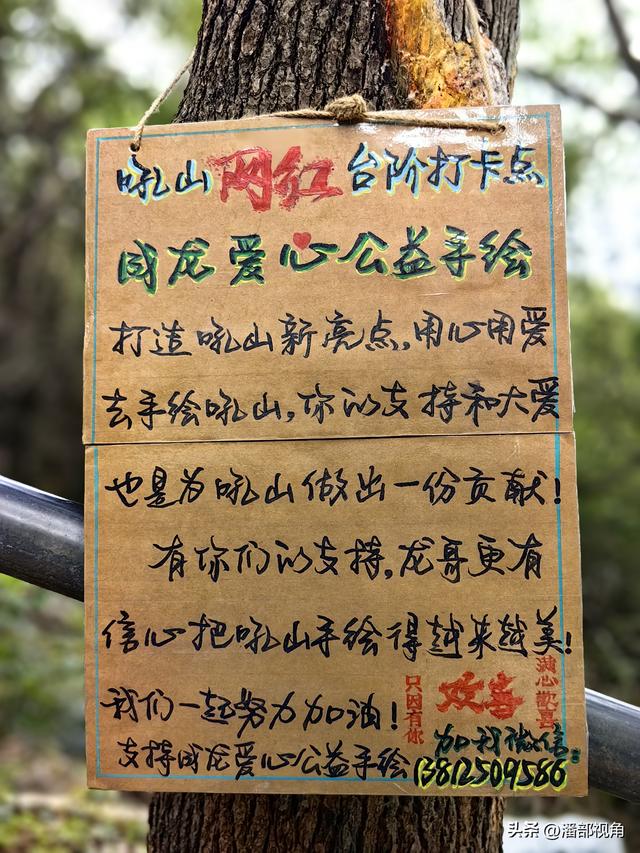 吼山网红台阶打卡点
成龙爱心公益手绘
打造吼山新亮点,用心用爱
去手绘吼山,你的支持和大爱
也是为吼山做出一份贡献!
有你们的支持,龙哥更有
信心把吼山手绘得越来越美!
我们一起努力加油!
只因有你
欢喜
满心歡喜
加我微信:
支持成龙爱心公益手绘
13812509586
头条 @潘部视角